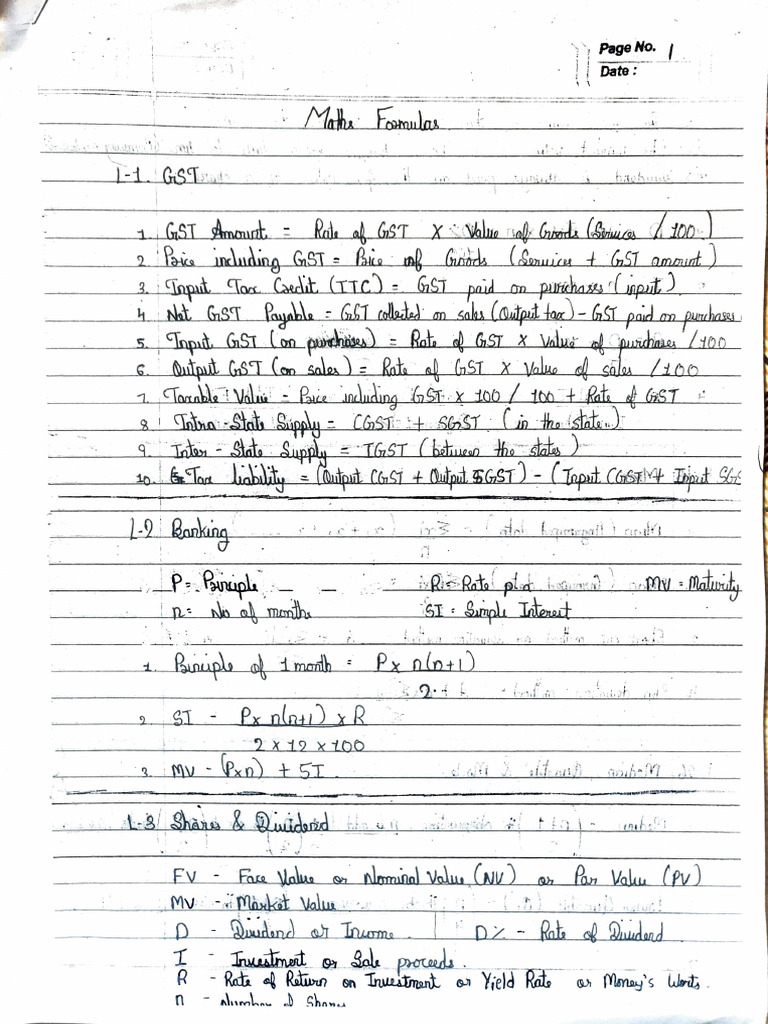 Page No. 1
Date :
Maths Formulas
L-1. GST
1. GST Amount = Rate of GST X Value of Goods (Services / 100)
2 Price including GST = Price of Goods (Services + GST amount)
3. Input Tax Credit (ITC) = GST paid on purchases (input)
4 Net GST Payable = GST collected on sales (Output tax) - GST paid on purchases
5. Input GST (on purchases) = Rate of GST X Value of purchases / 100
6. Output GST (on sales) = Rate of GST X Value of sales / 100
7. Taxable Value - Price including GST x 100 / 100 + Rate of GST
8 Intra - State Supply = CGST + SGST (in the state)
9. Inter - State Supply = IGST (between the states)
10. Tax liability = (Output CGST + Output SGST) - (Input CGST + Input SGS
L-2 Banking
P = Principle R = Rate p.a MV = Maturity
n = No of months SI = Simple Interest
1. Principle of 1 month = P x n(n+1)
2
2. SI - P x n(n+1) x R
2 x 12 x 100
3. MV - (Pxn) + SI
L-3 Shares & Dividered
FV - Face Value or Nominal Value (NV) or Par Value (PV)
MV - Market Value
D - Dividend or Income D% - Rate of Dividend
I - Investment or Sale proceeds.
R - Rate of Return on Investment or Yield Rate or Money's Worts.
n - Number of Shares